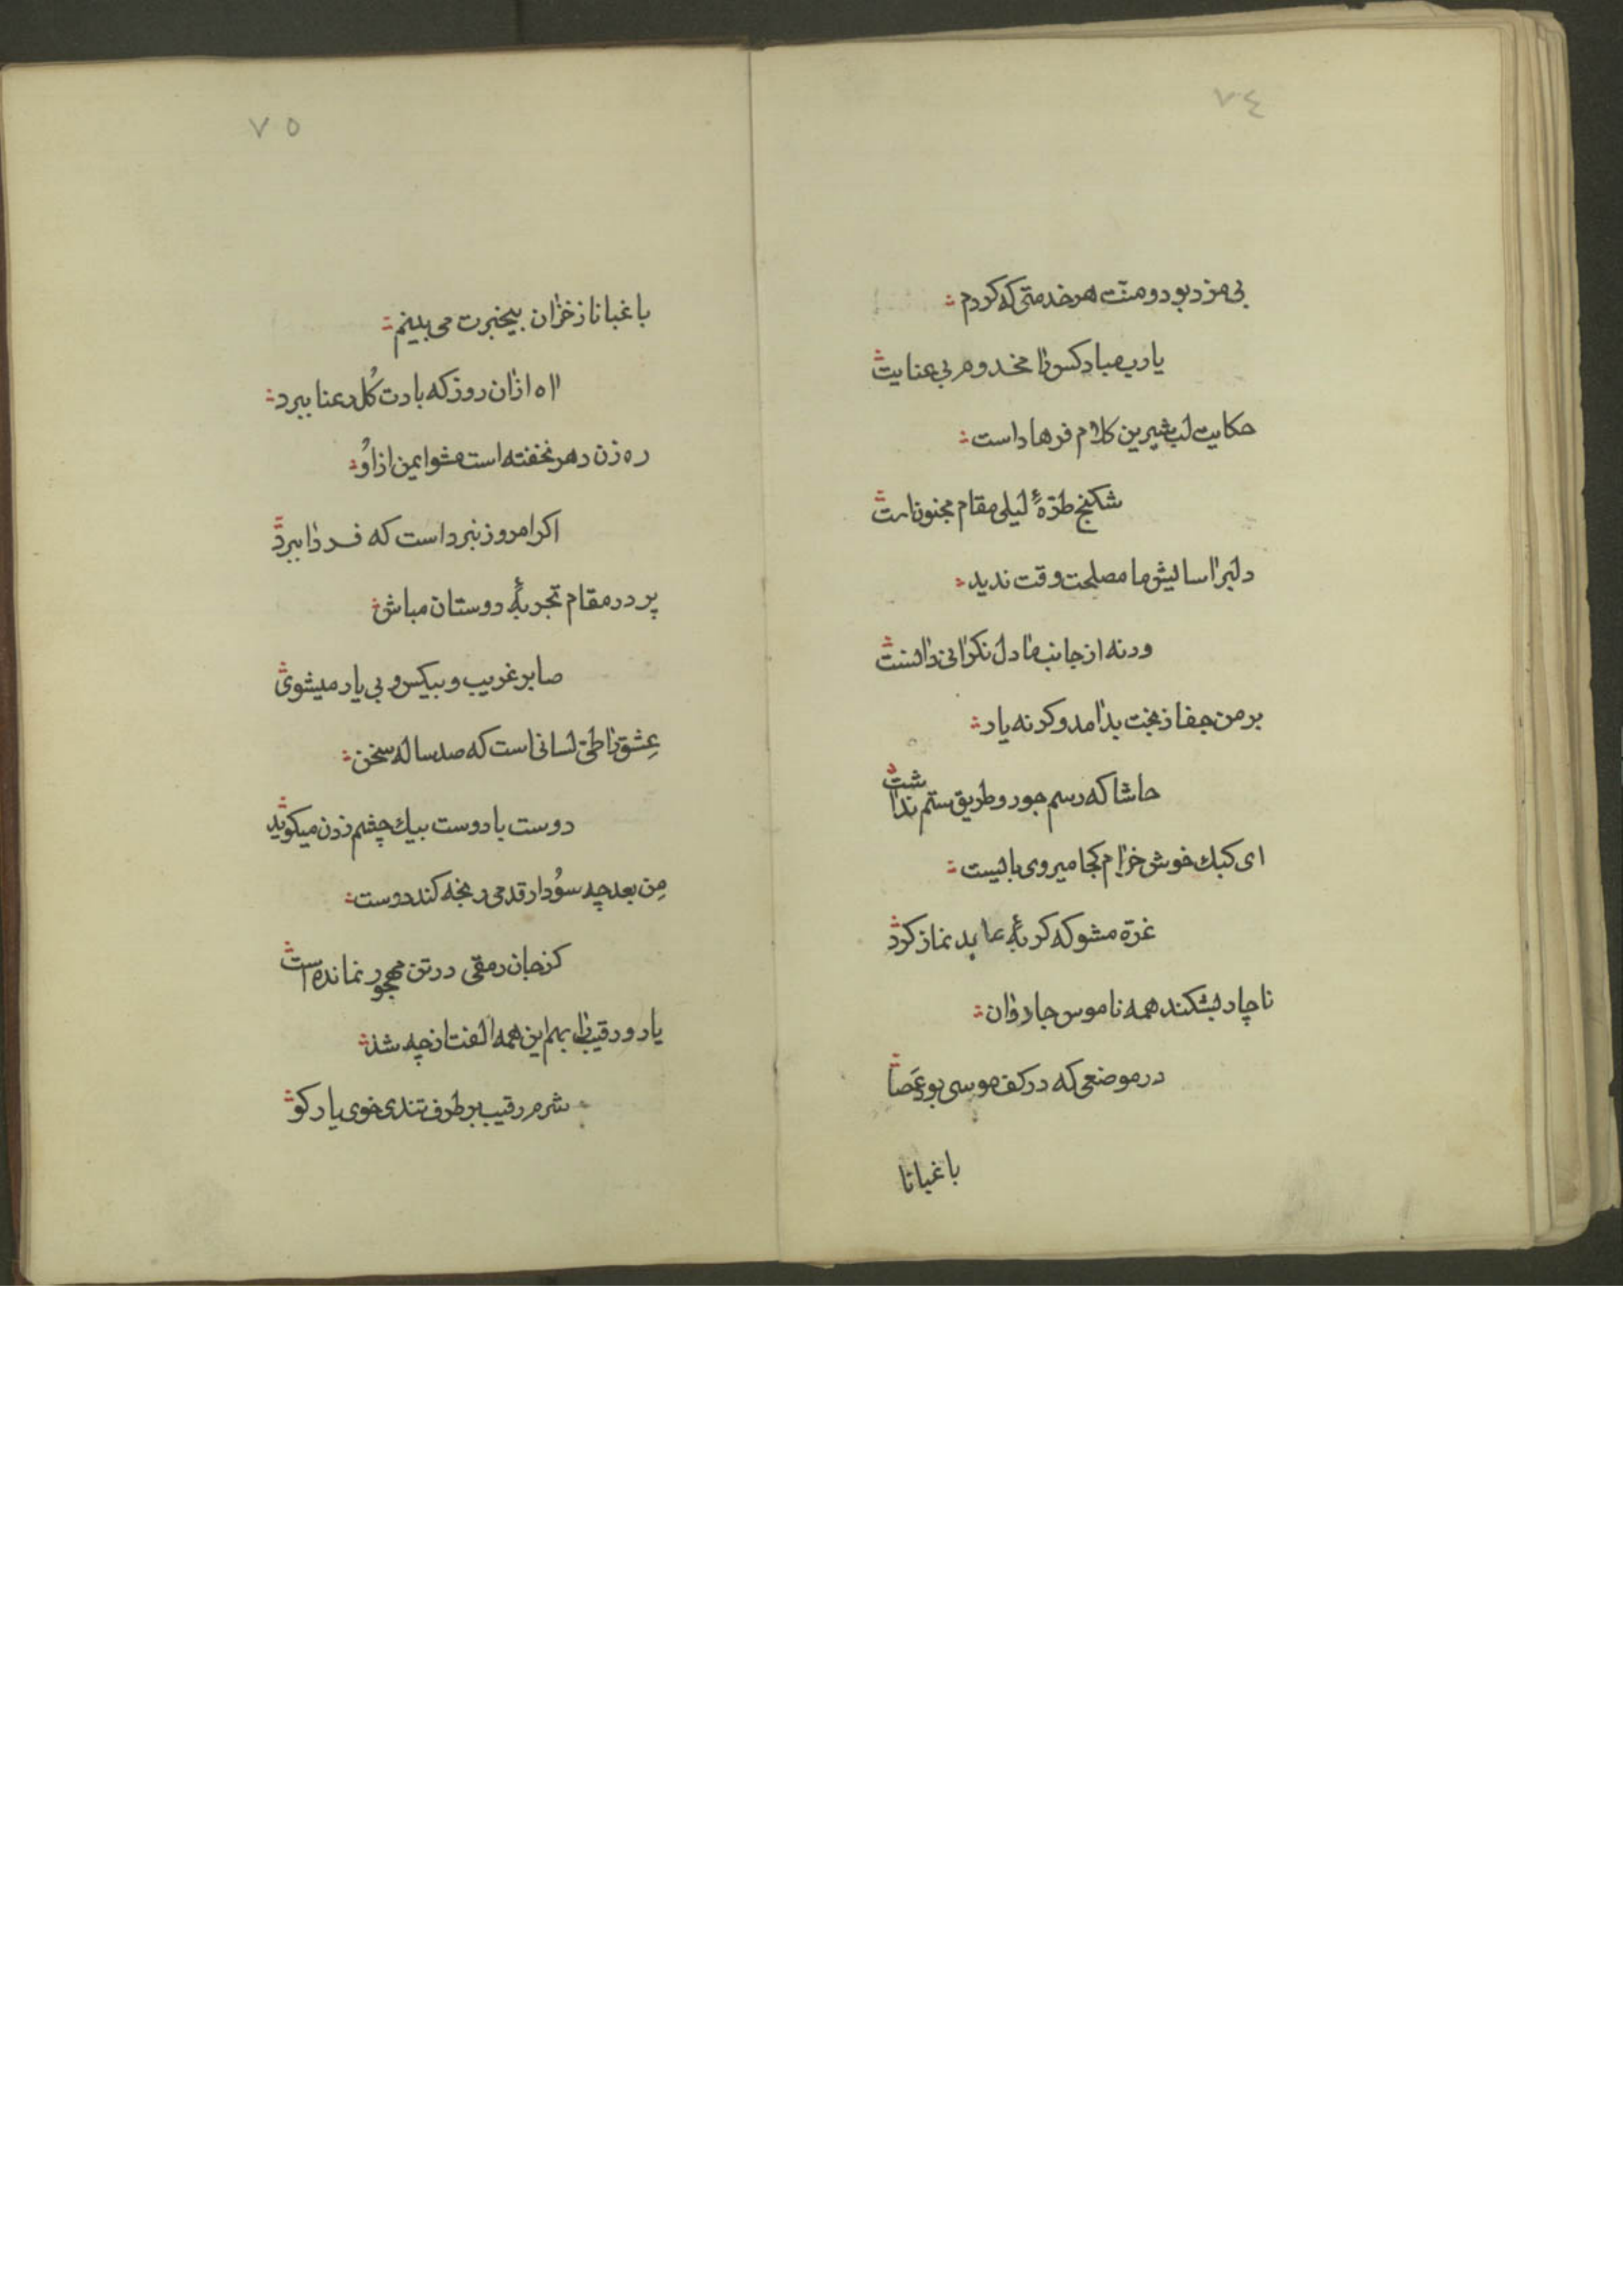 ٧٤
بی مزد بود و منّت هر خدمتی که کردم
یا رب مباد کس را مخدوم بی عنایت
حکایت لب شیرین کلام فرهاد است
شکنج طرّهٔ لیلی مقام مجنون است
دلبر اسایش ما مصلحت وقت ندید
ورنه از جانب ما دل نکرانی دانست
بر من جفا ز بخت بد امد وکرنه یار
حاشا که رسم جور و طریق ستم نداشت
ای کبك خوش خرام کجا میروی بایست
غرّه مشو که کربهٔ عابد نماز کرد
ناچار بشکند همه ناموس جادوان
در موضعی که در کف موسی بود عَصا
باغبانا
٧٥
باغبانا ز خزان بیخبرت می بینم
اه ازان روز که بادت کُل رعنا ببرد
ره زن دهر نخفته است مشو ایمن ازاو
اکر امروز نبرد است که فردا ببرد
پر در مقام تجربهٔ دوستان مباش
صابر غریب و بیکس و بی یار میشوی
عِشق را طیّ لسانی است که صد ساله سخن
دوست با دوست بیك چشم زدن میکوید
مِن بعد چه سوُد ار قدمی رنجه کند دوست
کز جان رمقی در تن مهجور نمانده است
یار و رقیب را بهم این همه الفت از چه شد
شرم رقیب بر طرف تندی خوی یار کو